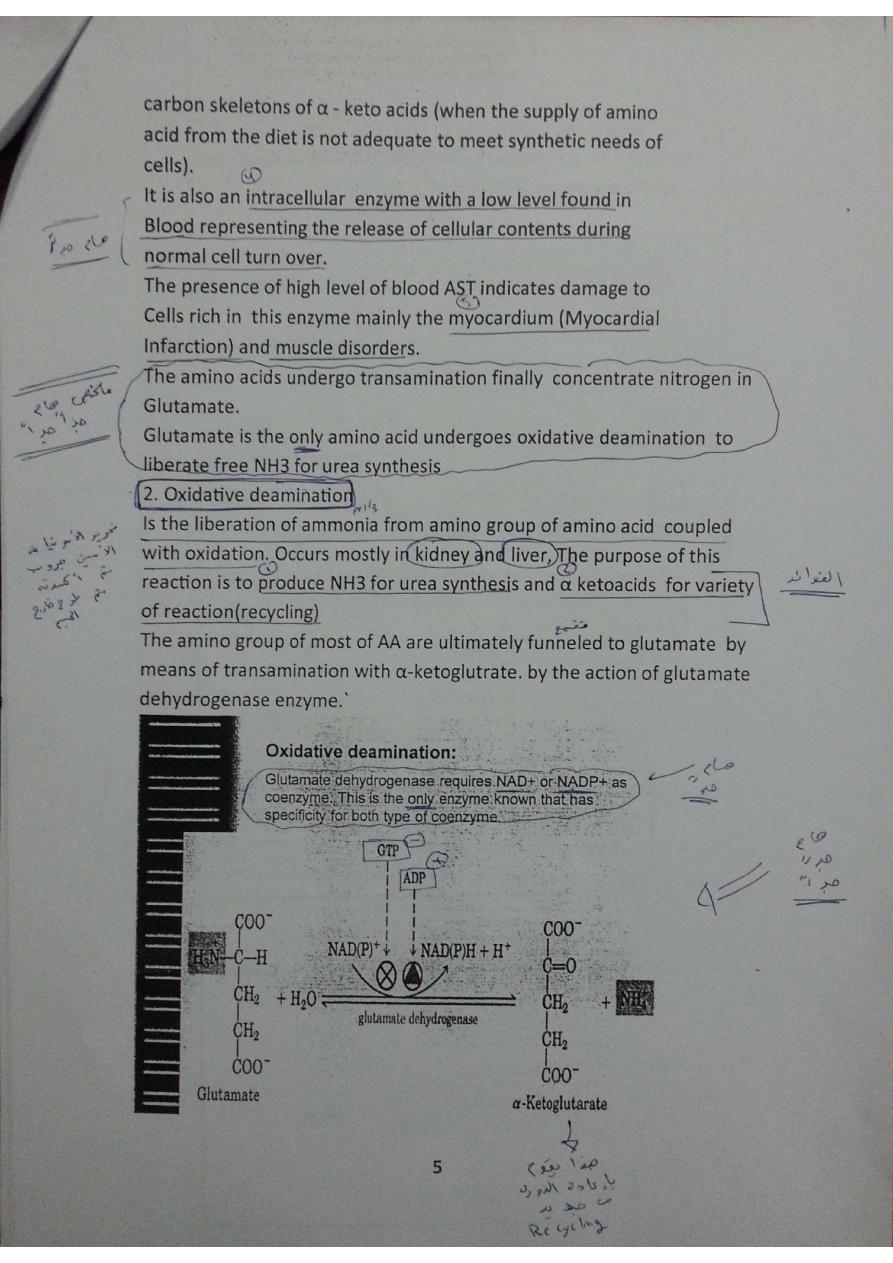 carbon skeletons of α - keto acids (when the supply of amino
acid from the diet is not adequate to meet synthetic needs of
cells).
It is also an intracellular enzyme with a low level found in
Blood representing the release of cellular contents during
normal cell turn over.
هام جداً
The presence of high level of blood AST indicates damage to
Cells rich in this enzyme mainly the myocardium (Myocardial
Infarction) and muscle disorders.
The amino acids undergo transamination finally concentrate nitrogen in
Glutamate.
Glutamate is the only amino acid undergoes oxidative deamination to
liberate free NH3 for urea synthesis
ملخص هام
جداً جداً
2. Oxidative deamination
Is the liberation of ammonia from amino group of amino acid coupled
with oxidation. Occurs mostly in kidney and liver, The purpose of this
reaction is to produce NH3 for urea synthesis and α ketoacids for variety
of reaction(recycling)
تحرير الأمونيا
الفوائد
The amino group of most of AA are ultimately funneled to glutamate by
means of transamination with α-ketoglutrate. by the action of glutamate
dehydrogenase enzyme.`
Oxidative deamination:
Glutamate dehydrogenase requires NAD+ or NADP+ as
coenzyme. This is the only enzyme known that has
specificity for both type of coenzyme
هام
جداً
هام
جداً
جداً
GTP −
ADP +
COO⁻
H₃N–C–H
CH₂
CH₂
COO⁻
Glutamate
+ H₂O
NAD(P)⁺
NAD(P)H + H⁺
glutamate dehydrogenase
COO⁻
C=O
CH₂
CH₂
COO⁻
α-Ketoglutarate
+ NH₄
هذا يقوم
بإعادة الدورة
من جديد
Recycling
5